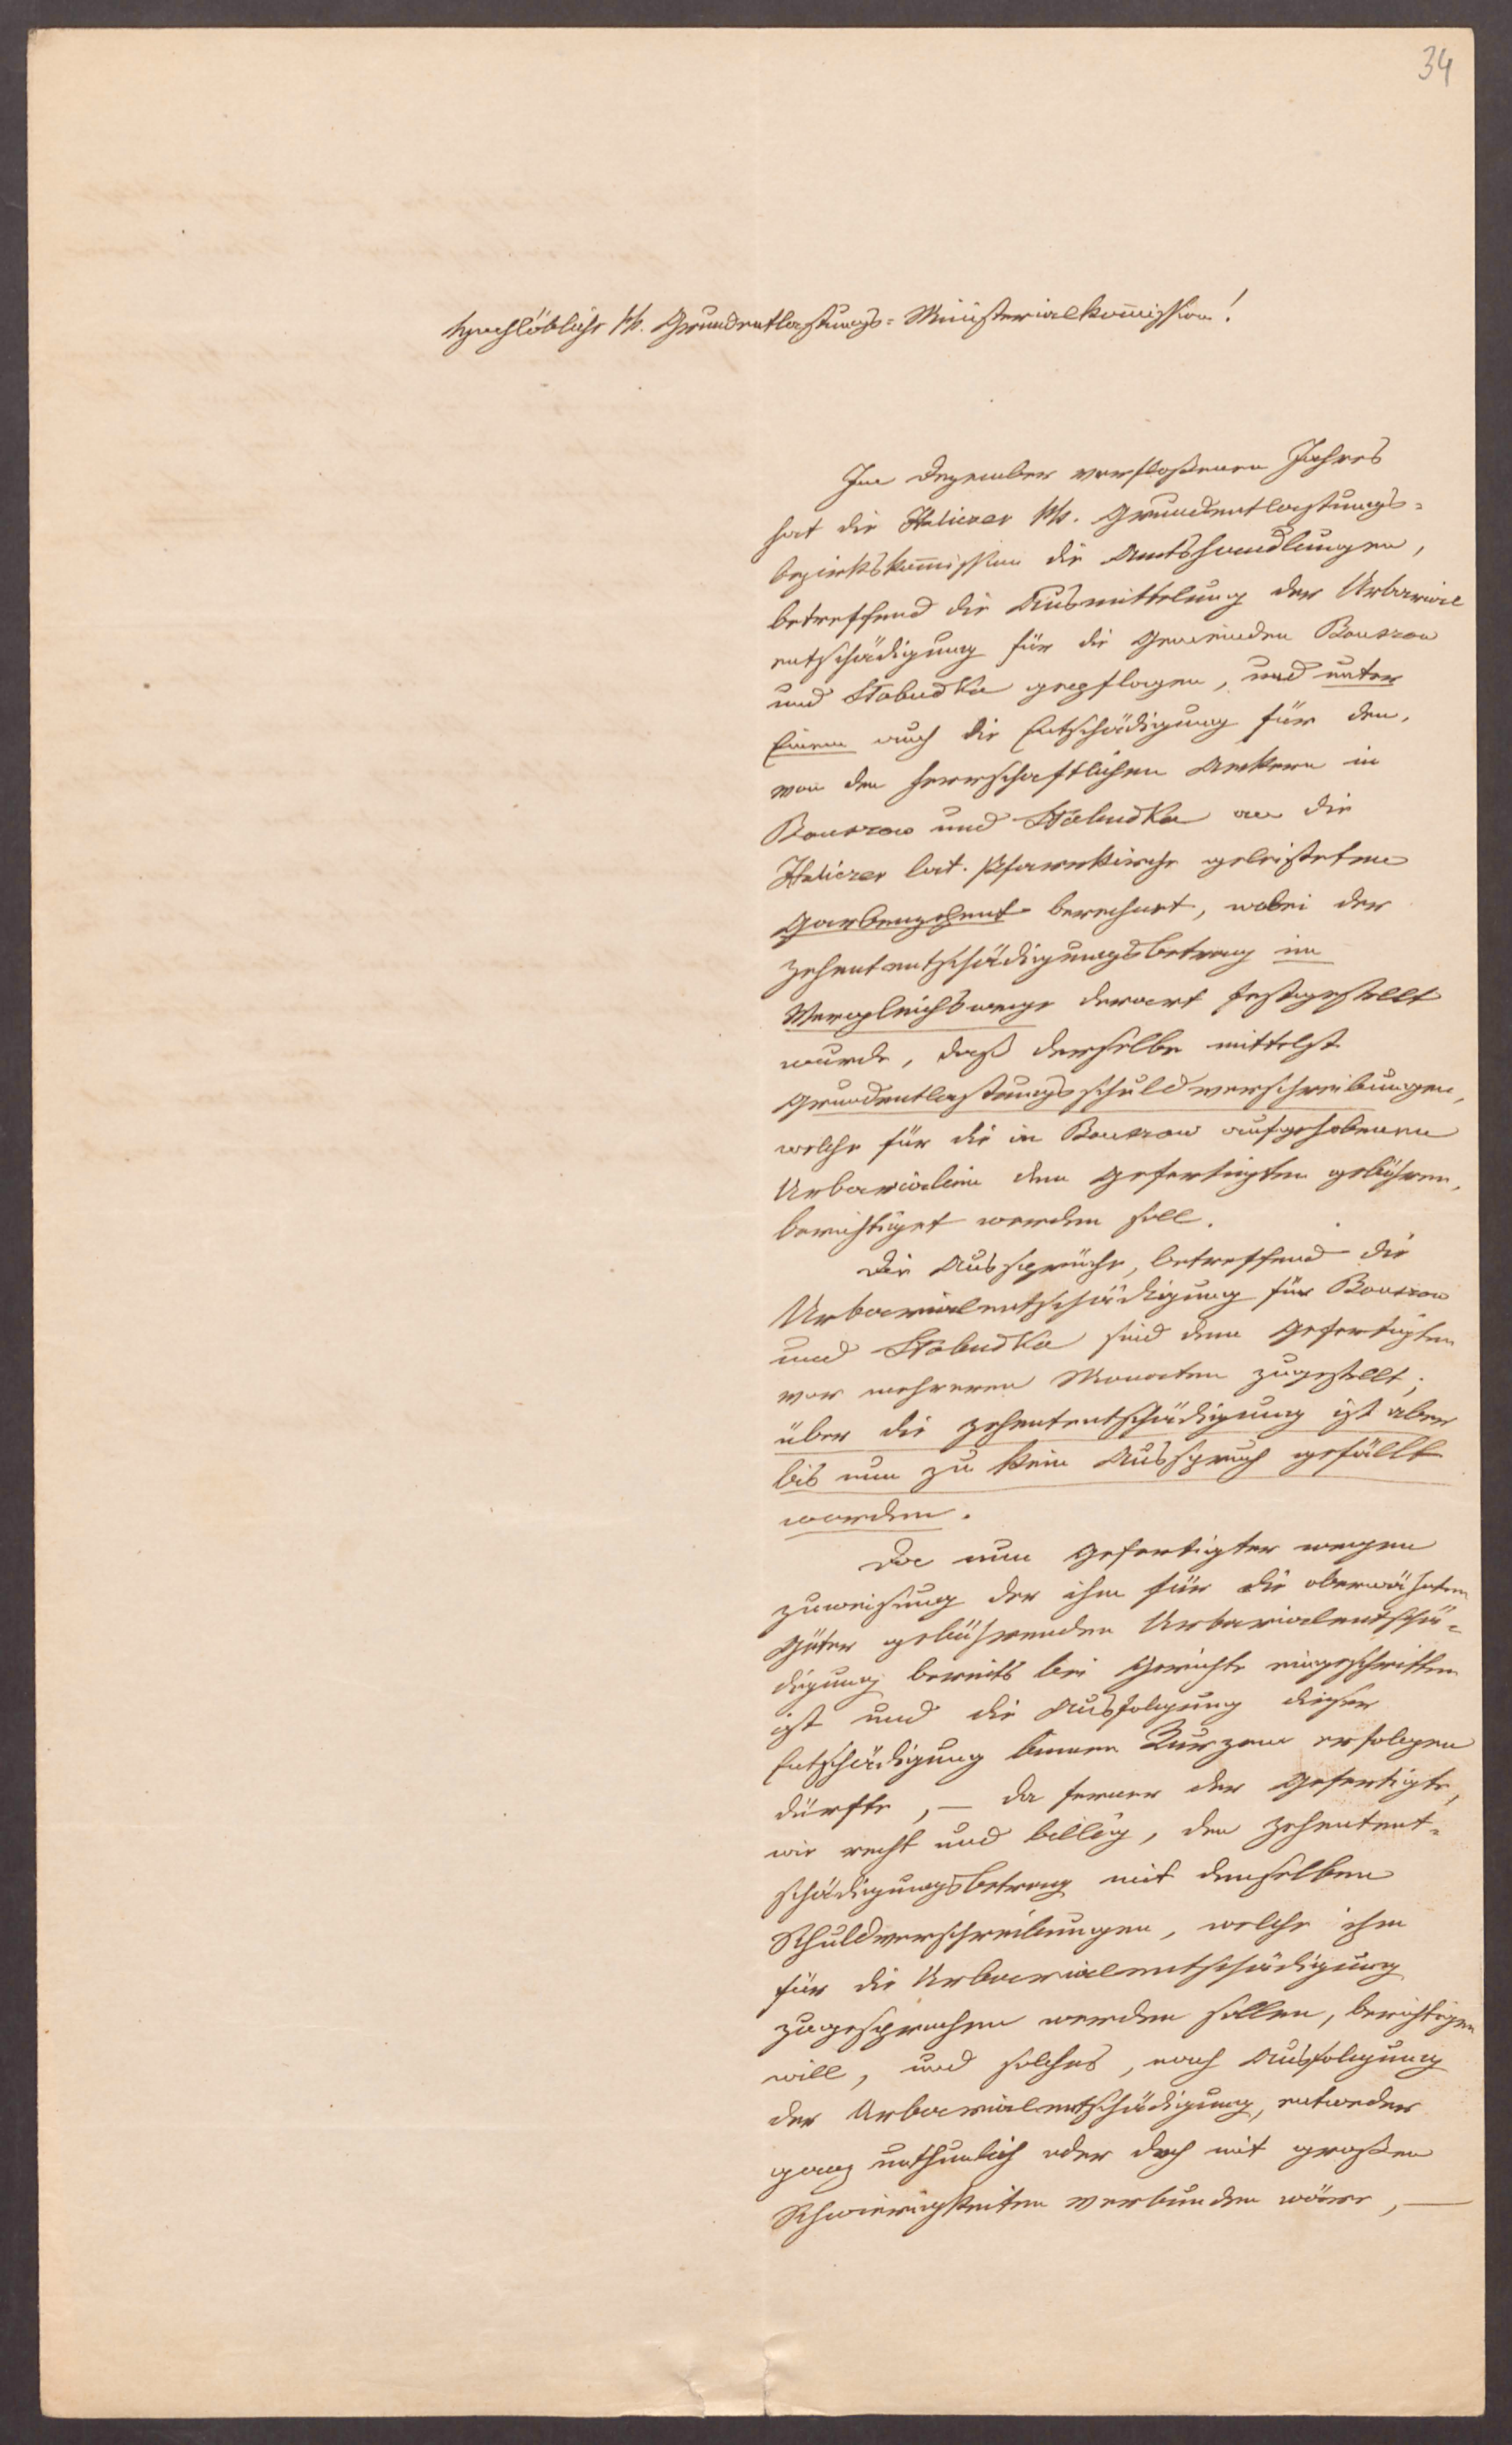 34
Hochlöbliche kk. Grundentlastungs-Ministerialkom̄ission!
Im Dezember verfloßenen Jahres
hat die Haliczer kk. Grundentlastungs-
bezirkskom̄ission die Amtshandlungen,
betreffend die Ausmittelung der Urbarial
entschädigung für die Gemeinden Bouszow
und Słobudka gepflogen, und unter
Einem auch die Entschädigung für den,
von den herrschaftlichen Aeckern in
Bouszow und Słobudka an die
Haliczer lat. Pfarrkirche geleisteten
Garbenzehent berechnet, wobei der
Zehententschädigungsbetrag im
Vergleichswege derart festgestellt
wurde, daß derselbe mittelst
Grundentlastungsschuldverschreibungen,
welche für die in Bouszow aufgehobenen
Urbarialien dem Gefertigten gebühren,
berichtiget werden soll.
Die Aussprüche, betreffend die
Urbarialentschädigung für Bouszow
und Słobudka sind dem Gefertigten
vor mehreren Monaten zugestellt;
über die Zehententschädigung ist aber
bis nun zu kein Ausspruch gefällt
worden.
Da nun Gefertigter wegen
Zuweisung der ihm für die oberwähnten
Güter gebührenden Urbarialentschä-
digung bereits bei Gerichte eingeschritten
ist und die Ausfolgung dieser
Entschädigung binnen Kurzem erfolgen
dürfte, — da ferner der Gefertigte,
wie recht und billig, den Zehentent-
schädigungsbetrag mit denselben
Schuldverschreibungen, welche ihm
für die Urbarialentschädigung
zugesprochen werden sollen, berichtigen
will, und solches, nach Ausfolgung
der Urbarialentschädigung, entweder
ganz unthunlich oder doch mit großen
Schwierigkeiten verbunden wäre, —